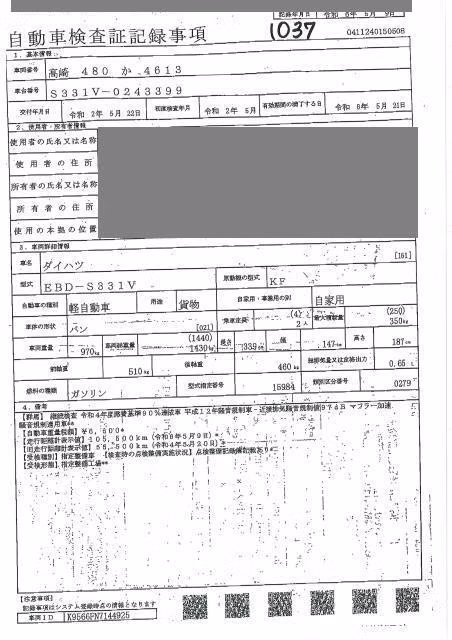 記録年月日 令和 6年 5月 9日
自動車検査証記録事項
1037
0411240150508
1．基本情報
車両番号 高崎 480 か 4613
車台番号 S331V-0243399
交付年月日 令和 2年 5月 22日 初度検査年月 令和 2年 5月 有効期間の満了する日 令和 8年 5月 21日
2．使用者・所有者情報
使用者の氏名又は名称
使用者の住所
所有者の氏名又は名称
所有者の住所
使用の本拠の位置
3．車両詳細情報
車名 ダイハツ [161]
型式 EBD-S331V 原動機の型式 KF
自動車の種別 軽自動車 用途 貨物 自家用・事業用の別 自家用
車体の形状 バン [021] 乗車定員 (4) 2人 最大積載量 (250) 350kg
車両重量 970kg 車両総重量 (1440) 1430kg 長さ 339cm 幅 147cm 高さ 187cm
前軸重 510kg 後軸重 460kg 総排気量又は定格出力 0.65 L
燃料の種類 ガソリン 型式指定番号 15984 類別区分番号 0279
4．備考
[群馬] 継続検査 令和4年度燃費基準90％達成車 平成12年騒音規制車 近接排気騒音規制値97dB マフラー加速
騒音規制適用車**
[自動車重量税額] ¥6,600*
[走行距離計表示値] 105,500km (令和6年5月9日) *
[受検種別] 指定整備車 [検査時の点検整備実施状況] 点検整備記録簿記載あり*
[受検形態] 指定整備工場**
【注意事項】
記録事項はシステム登録時点の情報となります
車両ID K9566PN7144925